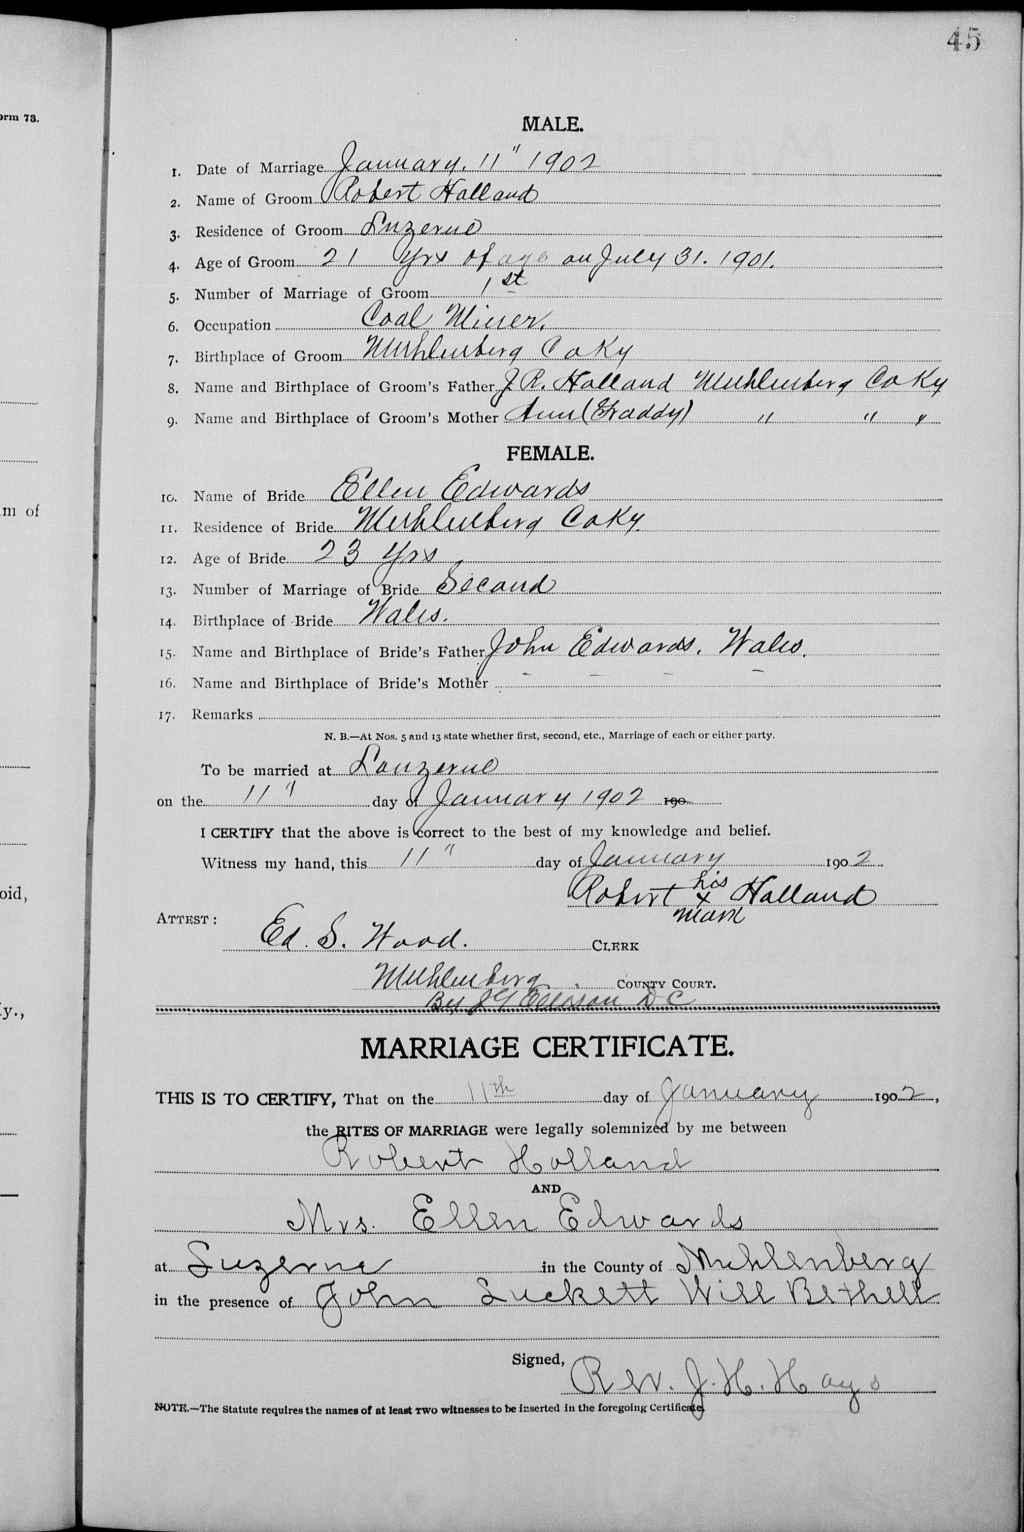 45
orm 78.
MALE.
1. Date of Marriage January. 11" 1902
2. Name of Groom Robert Holland
3. Residence of Groom Luzerne
4. Age of Groom 21 yrs of age on July 31. 1901.
5. Number of Marriage of Groom 1st
6. Occupation Coal Miner.
7. Birthplace of Groom Muhlenberg Co Ky
8. Name and Birthplace of Groom's Father J R. Holland Muhlenberg Co Ky
9. Name and Birthplace of Groom's Mother Ann (Graddy) " " "
FEMALE.
10. Name of Bride Ellen Edwards
m of
11. Residence of Bride Muhlenberg Co Ky.
12. Age of Bride 23 Yrs
13. Number of Marriage of Bride Second
14. Birthplace of Bride Wales.
15. Name and Birthplace of Bride's Father John Edwards. Wales.
16. Name and Birthplace of Bride's Mother - - - -
17. Remarks
N. B.—At Nos. 5 and 13 state whether first, second, etc., Marriage of each or either party.
To be married at Louzerne
on the 11" day of January 1902 190
I CERTIFY that the above is correct to the best of my knowledge and belief.
Witness my hand, this 11" day of January 1902.
oid,
Robert his x mark Holland
ATTEST:
Ed. S. Wood. CLERK
Muhlenberg COUNTY COURT.
By J G Ellison D C
y.,
MARRIAGE CERTIFICATE.
THIS IS TO CERTIFY, That on the 11th day of January 1902,
the RITES OF MARRIAGE were legally solemnized by me between
Robert Holland
AND
Mrs. Ellen Edwards
at Luzerne in the County of Muhlenberg
in the presence of John Luckett Will Bethell
Signed,
Rev. J. H. Hays
NOTE.—The Statute requires the names of at least TWO witnesses to be inserted in the foregoing Certificate.